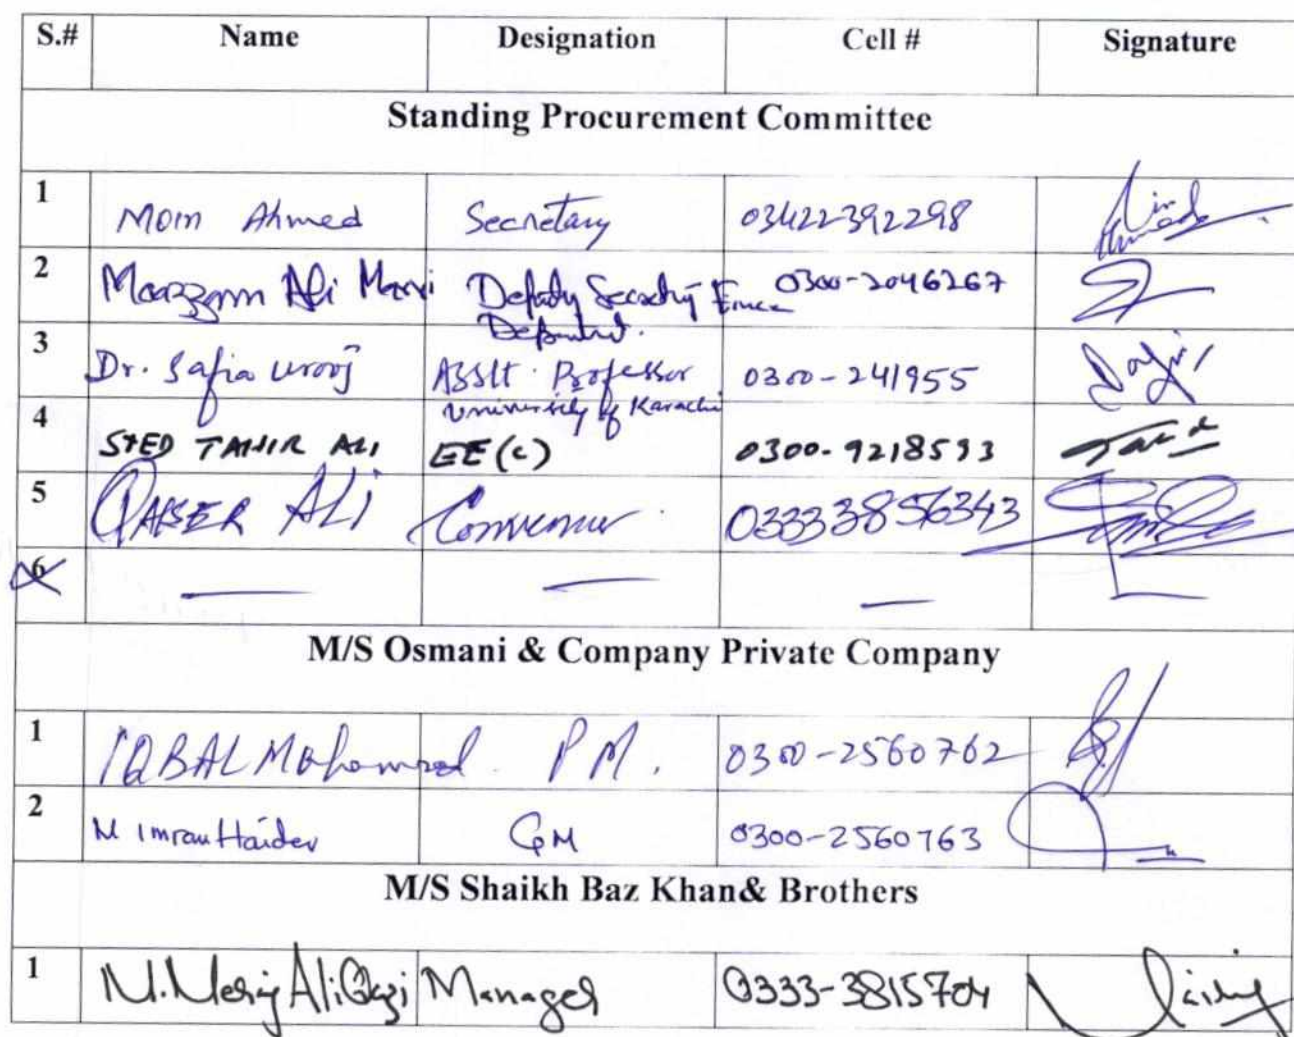 S.# Name Designation Cell # Signature
Standing Procurement Committee
1 Moin Ahmed Secretary 03422392298
2 Moazzam Ali Marvi Deputy Secretary 0300-2046267
3 Dr. Safia urooj Asstt. Professor 0300-241955
University of Karachi
4 SYED TAHIR ALI EE (c) 0300-9218593
5 QAISER ALI Convenor 03333856343
6 — — —
M/S Osmani & Company Private Company
1 IQBAL Mohammed P M. 0300-2560762
2 M Imran Haider GM 0300-2560763
M/S Shaikh Baz Khan& Brothers
1 M. Ali Manager 0333-3815704